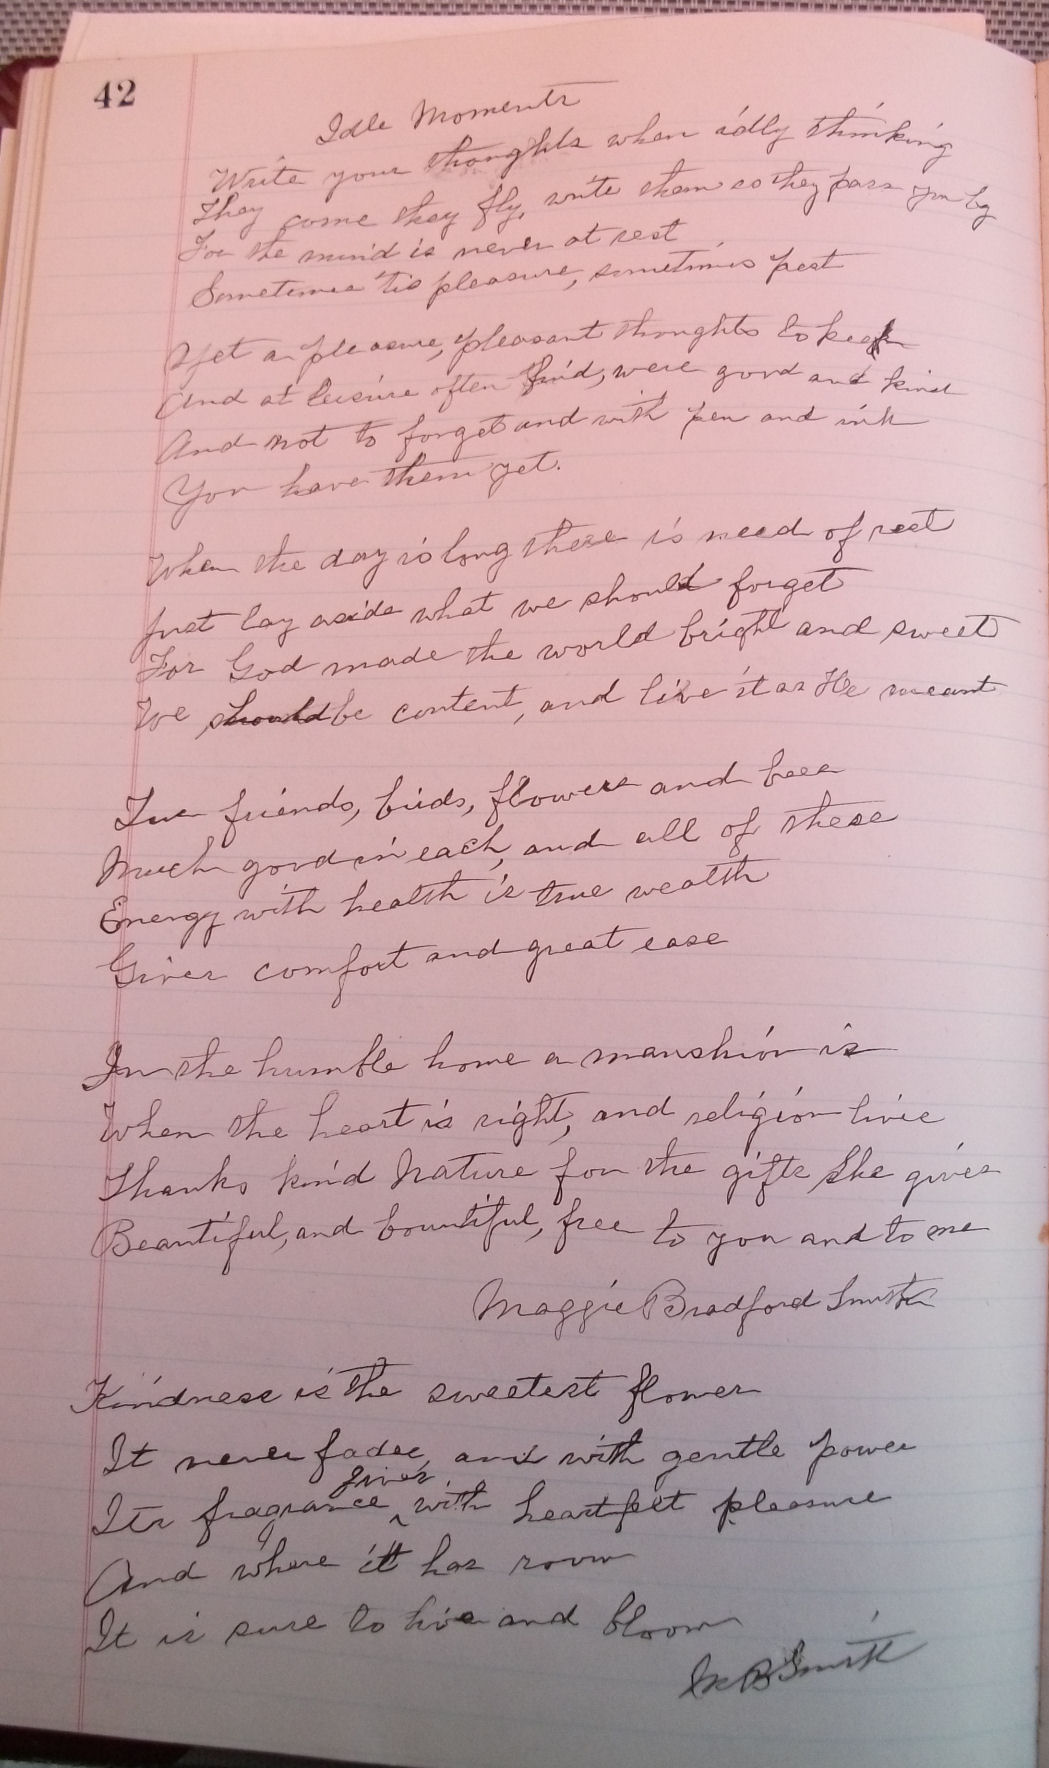 42
Idle Moments
Write your thoughts when idly thinking
They come they fly, write them as they pass you by
For the mind is never at rest
Sometimes 'tis pleasure, sometimes pest
Yet a pleasure, pleasant thoughts to keep
And at leisure often find, were good and kind
And not to forget and with pen and ink
You have them yet.
When the day is long there is need of rest
Just lay aside what we should forget
For God made the world bright and sweet
We should be content, and live it as He meant
True friends, birds, flowers and bees
Much good in each, and all of these
Energy with health is true wealth
Gives comfort and great ease
In the humble home a manshion is
When the heart is right, and religion lives
Thanks kind Nature for the gifts She gives
Beautiful, and bountiful, free to you and to me
Maggie Bradford Smith
Kindness is the sweetest flower
It never fades, and with gentle power
Its fragrance gives with heartfelt pleasure
And where it has room
It is sure to live and bloom
B Smith